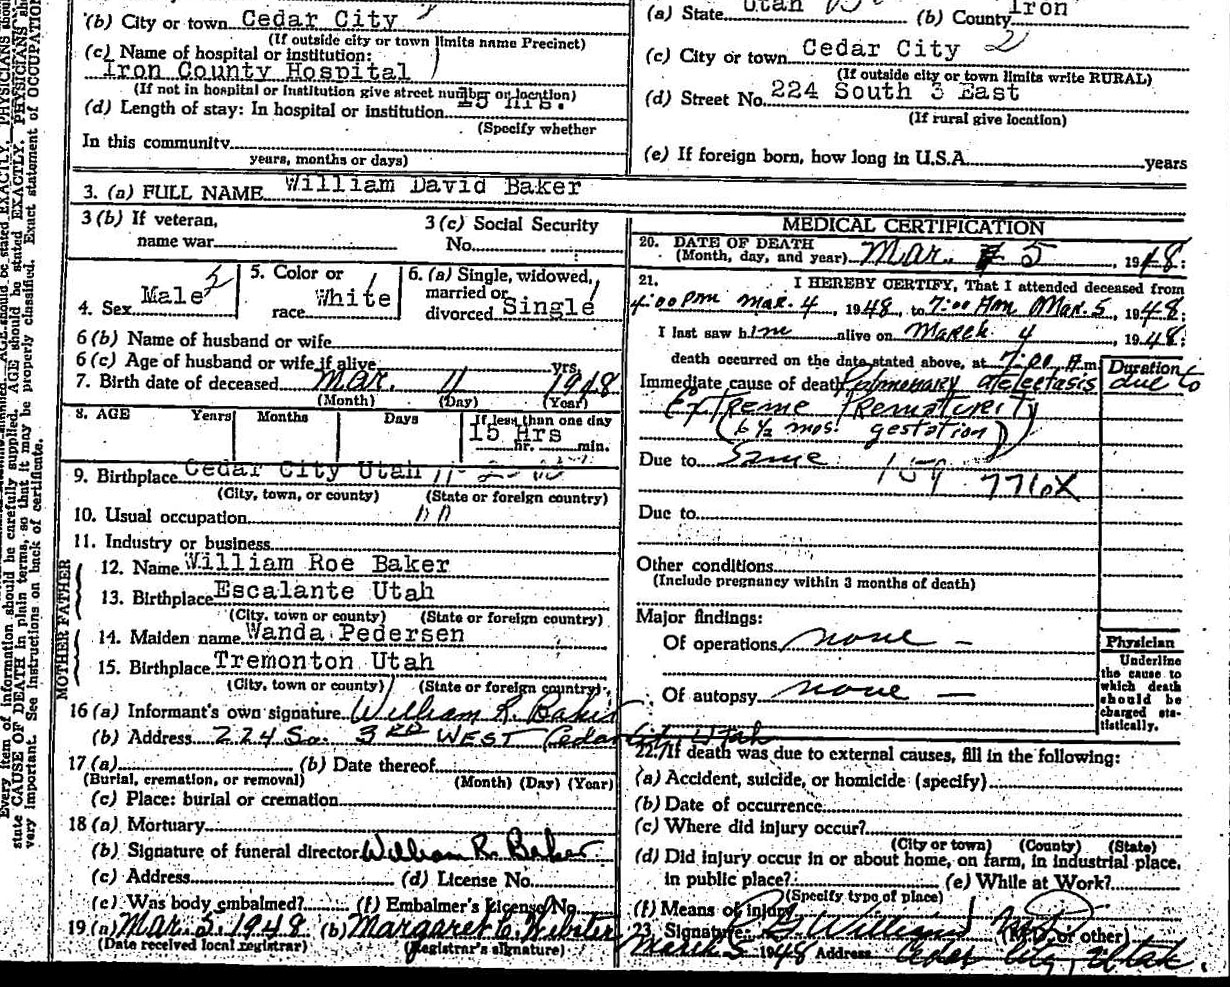 (b) City or town Cedar City
(If outside city or town limits name Precinct)
(c) Name of hospital or institution:
Iron County Hospital
(If not in hospital or institution give street number or location)
(d) Length of stay: In hospital or institution 15 hrs.
(Specify whether
In this community
years, months or days)
(a) State Utah (b) County Iron
(c) City or town Cedar City
(If outside city or town limits write RURAL)
(d) Street No. 224 South 3 East
(If rural give location)
(e) If foreign born, how long in U.S.A. years
3. (a) FULL NAME William David Baker
3 (b) If veteran,
name war
3 (c) Social Security
No.
4. Sex Male
5. Color or
race White
6. (a) Single, widowed,
married or
divorced Single
6 (b) Name of husband or wife
6 (c) Age of husband or wife if alive yrs.
7. Birth date of deceased Mar. 11 1948
(Month) (Day) (Year)
8. AGE Years Months Days If less than one day
15 Hrs
hr. min.
9. Birthplace Cedar City Utah
(City, town, or county) (State or foreign country)
10. Usual occupation
11. Industry or business
FATHER
12. Name William Roe Baker
13. Birthplace Escalante Utah
(City, town or county) (State or foreign country)
MOTHER
14. Maiden name Wanda Pedersen
15. Birthplace Tremonton Utah
(City, town or county) (State or foreign country)
16 (a) Informant's own signature William R. Baker
(b) Address 224 So. 3RD WEST Cedar City Utah
17 (a) (b) Date thereof
(Burial, cremation, or removal) (Month) (Day) (Year)
(c) Place: burial or cremation
18 (a) Mortuary
(b) Signature of funeral director William R. Baker
(c) Address (d) License No.
(e) Was body embalmed? (f) Embalmer's License No.
19 (a) Mar. 5, 1948 (b) Margaret C. Webster
(Date received local registrar) (Registrar's signature)
MEDICAL CERTIFICATION
20. DATE OF DEATH
(Month, day, and year) Mar. 5, 1948:
21. I HEREBY CERTIFY, That I attended deceased from
4:00 Pm Mar. 4, 1948, to 7:00 Am Mar. 5, 1948:
I last saw him alive on March 4, 1948:
death occurred on the date stated above, at 7:00 A.m.
Duration
Immediate cause of death Pulmonary atelectasis due to
Extreme Prematurity
(6 1/2 mos. gestation)
Due to Same 159 776X
Due to
Other conditions
(Include pregnancy within 3 months of death)
Major findings:
Of operations none -
Of autopsy none -
Physician
Underline
the cause to
which death
should be
charged sta-
tistically.
22. If death was due to external causes, fill in the following:
(a) Accident, suicide, or homicide (specify)
(b) Date of occurrence
(c) Where did injury occur?
(City or town) (County) (State)
(d) Did injury occur in or about home, on farm, in industrial place,
in public place? (e) While at Work?
(Specify type of place)
(f) Means of injury
23. Signature Williams MD (M.D. or other)
March 5 1948 Address Cedar City, Utah.
Every item of information should be carefully supplied. AGE should be stated EXACTLY. PHYSICIANS should
state CAUSE OF DEATH in plain terms, so that it may be properly classified. Exact statement of OCCUPATION
very important. See instructions on back of certificate.